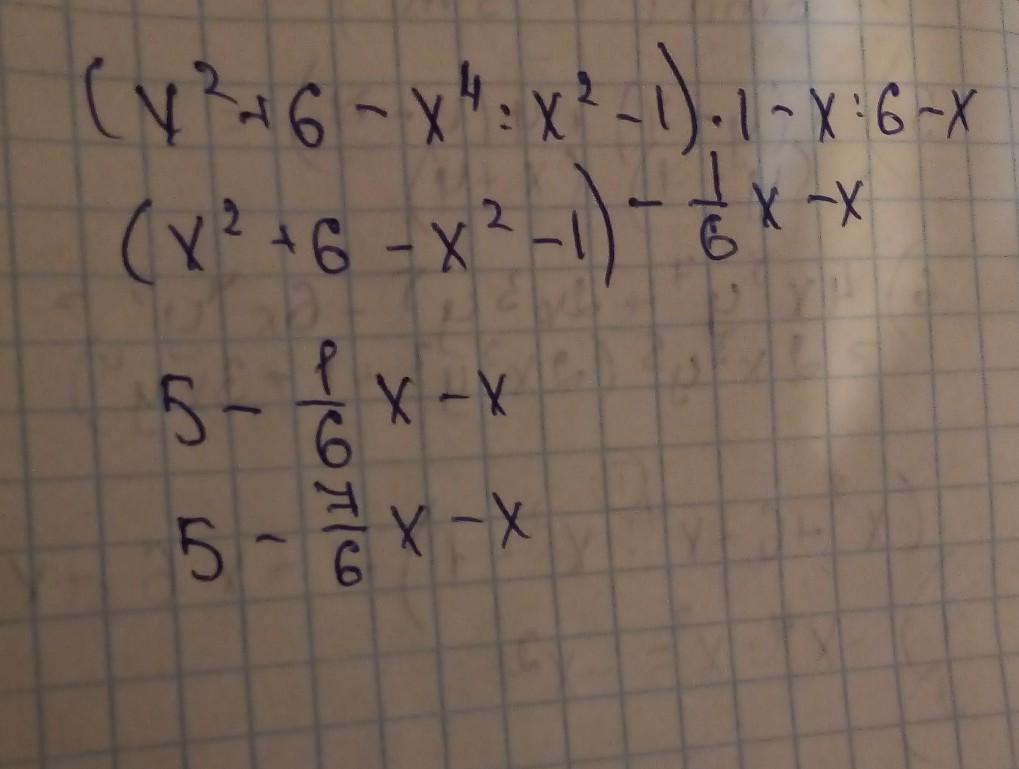 (x² + 6 - x⁴ : x² - 1) · 1 - x : 6 - x
(x² + 6 - x² - 1) - 1/6 x - x
5 - 1/6 x - x
5 - π/6 x - x